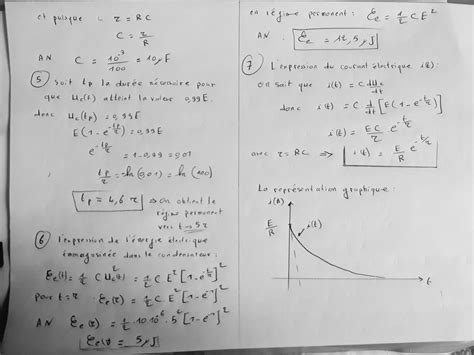 et puisque : τ = RC
C = τ/R
AN C = 10⁻³/100 = 10 μF
⑤ soit tp la durée nécessaire pour
que Uc(t) atteint la valeur 0,99E.
donc Uc(tp) = 0,99E
E(1 - e^(-tp/τ)) = 0,99E
e^(-tp/τ) = 1 - 0,99 = 0,01
tp/τ = -ln(0,01) = ln(100)
tp = 4,6 τ ⇒ on obtient le
régime permanent
vers t → 5τ
⑥ l'expression de l'énergie électrique
emmagasinée dans le condensateur :
Ee(t) = 1/2 C Uc²(t) = 1/2 C.E² [1 - e^(-t/τ)]²
pour t = τ : Ee(τ) = 1/2 C.E² [1 - e⁻¹]²
AN Ee(τ) = 1/2 . 10.10⁻⁶ . 5² [1 - e⁻¹]²
Ee(τ) = 5 μJ
en régime permanent : Ee = 1/2 C E²
AN : Ee = 12,5 μJ
⑦ L'expression du courant électrique i(t) :
on sait que i(t) = C dUc/dt
donc i(t) = C d/dt [E(1 - e^(-t/τ))]
i(t) = EC/τ e^(-t/τ)
avec τ = RC ⇒ i(t) = E/R e^(-t/τ)
La représentation graphique :
i(A)
E/R
i(t)
t